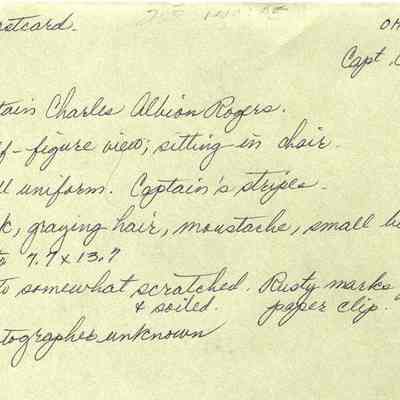 ostcard. OH
Capt. C
tain Charles Albion Rogers.
lf-figure view; sitting in chair.
ll uniform. Captain's stripes.
k, graying hair, moustache, small be
to 7.7 x 13.7
to somewhat scratched. Rusty marks
& soiled. paper clip.
tographer unknown